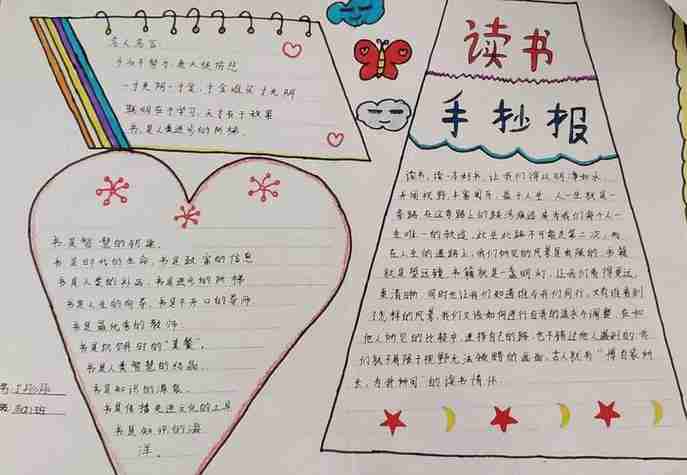 名人名言:
一寸光阴一寸金,寸金难买寸光阴
聪明在于学习,天才在于积累
书,是人类进步的阶梯.
读书
手抄报
读书,读一本好书,让我们得以明净如水,
开阔视野,丰富阅历,益于人生.人一生就是一
条路,在这条路上的跋涉痕迹成为我们每个人一
生唯一的轨迹,此生此路不可能走第二次,而
在人生的道路上,我们所见的风景是有限的.书籍
就是望远镜,书籍就是一盏明灯,让我们看得更远,
更清晰.同时也让我们知道谁与我们同行,又有谁看到
了怎样的风景,我们又该如何进行自己的
他人所见的比较中,选择自己的路,也不错过他人
们就于局限于视野无法领略的画面,古人就有"
的读书情怀.
书是智慧的钥匙.
书是时代的生命,书是致富的信息
书是人类的礼品,书是进步的阶梯
书是人生的向导,书是不开口的导师
书是最优秀的教师
书是
书是人类智慧的结晶
书是知识的源泉
书是传播先进文化的工具
书是知识的海
洋.